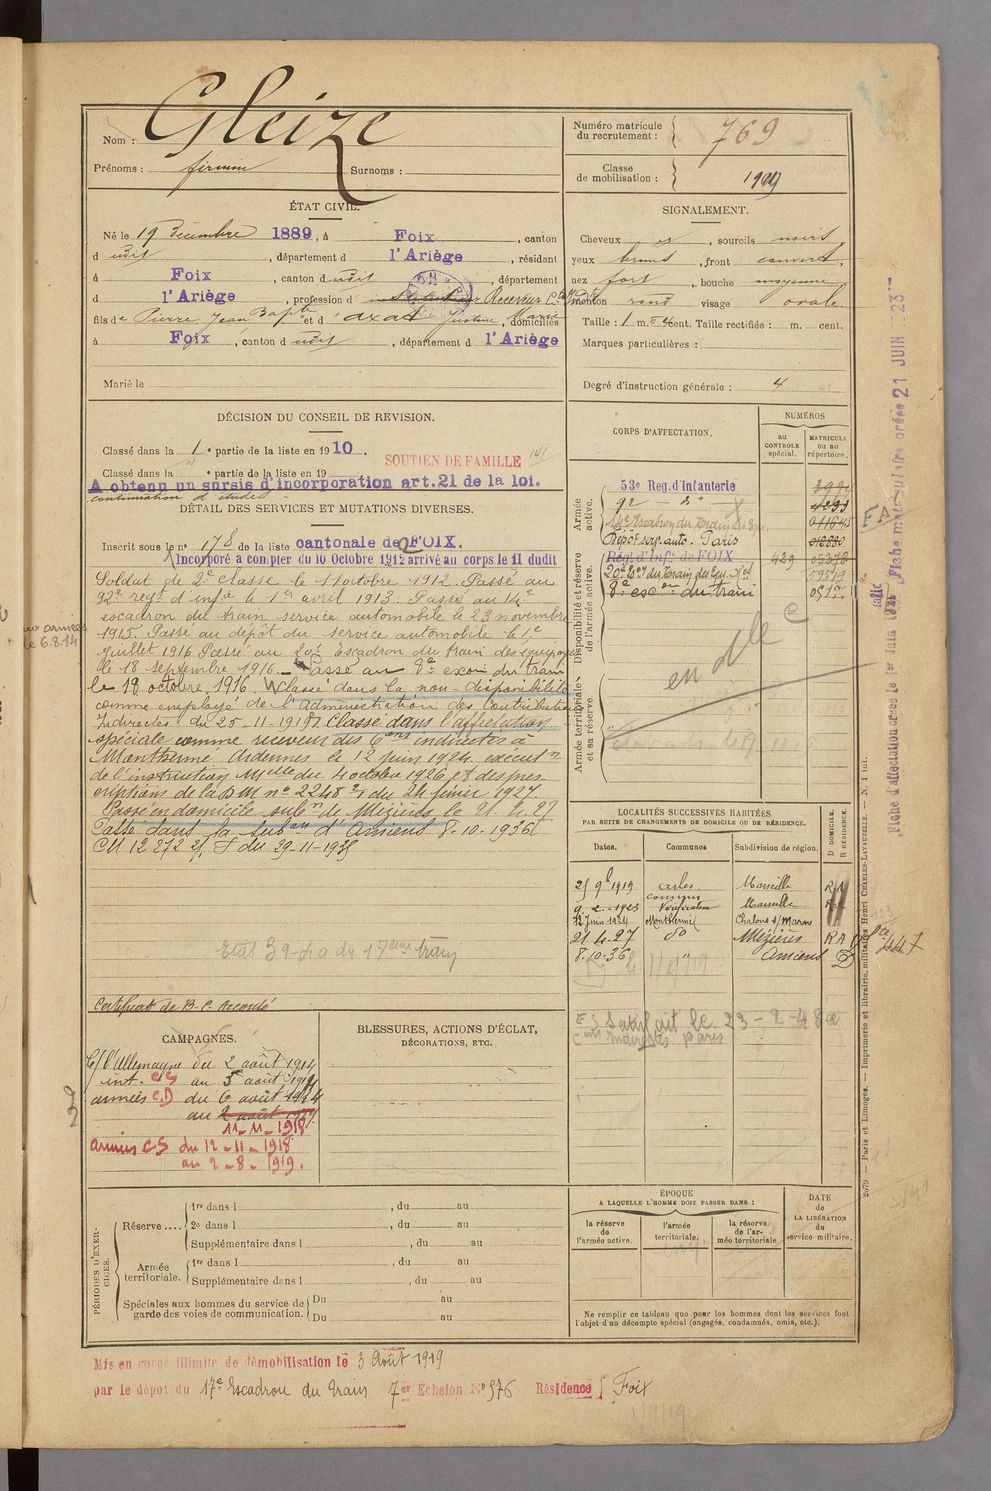 Nom : Gleize
Prénoms : firmin Surnoms :
Numéro matricule du recrutement : 769
Classe de mobilisation : 1909
ÉTAT CIVIL.
Né le 19 Décembre 1889, à Foix, canton
d udit, département d l'Ariège, résidant
à Foix, canton d udit, département
d l'Ariège, profession d Receveur
fils de Pierre Jean Bapte et d Justine Marie, domiciliés
à Foix, canton d udit, département d l'Ariège
Marié le
SIGNALEMENT.
Cheveux et, sourcils noirs
yeux bruns, front couvert,
nez fort, bouche moyenne
menton rond visage ovale.
Taille : 1 m. cent. Taille rectifiée : m. cent.
Marques particulières :
Degré d'instruction générale : 4
DÉCISION DU CONSEIL DE REVISION.
Classé dans la 1e partie de la liste en 1910.
Classé dans la e partie de la liste en 19
SOUTIEN DE FAMILLE
A obtenu un sursis d'incorporation art. 21 de la loi.
continuation d'études
DÉTAIL DES SERVICES ET MUTATIONS DIVERSES.
Inscrit sous le no 178 de la liste cantonale de FOIX.
Incorporé à compter du 10 Octobre 1912 arrivé au corps le 11 dudit
Soldat de 2e classe le 11 octobre 1912. Passé au
92e regt d'infie le 1er avril 1913. Passé au 14e
escadron du train service automobile le 23 novembre
1915. Passé au dépôt du service automobile le 1e
Juillet 1916 Passé au 20e Escadron du train des équipages
le 18 septembre 1916. Passé au 8e escon du train
le 18 octobre 1916. Classé dans la non-disponibilité
comme employé de l'Administration des Contributions
Indirectes du 25-11-1919. Classé dans l'affectation
spéciale comme receveur des Cons indirectes à
Monthermé Ardennes le 12 juin 1924 exécutn
de l'instruction Melle du 4 octobre 1926 et des pres
criptions de la D M no 2248 du 24 février 1927.
Passé en domicile subn de Mézières le 21.4.27
Passé dans la subon d'Amiens 8-10-1936
CM 12 272 du 29-11-1935
aux armées
le 6.8.14
Etat 39-40 du 17ème train
Certificat de B-C. Accordé
CORPS D'AFFECTATION.
NUMÉROS
au CONTRÔLE spécial.
MATRICULE ou au répertoire.
Armée active.
53e Reg. d'Infanterie
92 - do
14e Escadron du train des Eq.
Dépôt serv. auto. Paris
Disponibilité et réserve de l'armée active.
Régt d'Infie de FOIX 429
20e Eon du train des Eq.
8e escon du train
Armée territoriale et sa réserve.
EA
Fiche matriculaire créée 21 JUIN 23
Fiche d'affectation créée le 1er Juin
LOCALITÉS SUCCESSIVES HABITÉES
PAR SUITE DE CHANGEMENTS DE DOMICILE OU DE RÉSIDENCE.
Dates. Communes Subdivision de région. D DOMICILE. R RÉSIDENCE.
25 9b 1919 Arles. Marseille
9-2-1923 Marseille
12 Juin 1924 Monthermé Chalons s/ Marne
21.4.27 do Mézières R A
8.10.36 " Amiens D
Satisfait le 23-2-48
indirectes Paris
CAMPAGNES.
C/ l'Allemagne du 2 août 1914
int. CS au 5 août 1914
armées CD du 6 août 1914
au 2 août 1919
11-11-1918
armées CS du 12-11-1918
au 2-8-1919.
BLESSURES, ACTIONS D'ÉCLAT, DÉCORATIONS, ETC.
PÉRIODES D'EXERCICES.
Réserve....
1re dans l , du au
2e dans l , du au
Supplémentaire dans l , du au
Armée territoriale.
1re dans l , du au
Supplémentaire dans l , du au
Spéciales aux hommes du service de garde des voies de communication.
Du au
Du au
ÉPOQUE
A LAQUELLE L'HOMME DOIT PASSER DANS :
la réserve de l'armée active.
l'armée territoriale.
la réserve de l'armée territoriale
DATE de LA LIBÉRATION du service militaire.
Ne remplir ce tableau que pour les hommes dont les services font
l'objet d'un décompte spécial (engagés, condamnés, omis, etc.).
2079 — Paris et Limoges. — Imprimerie et librairie militaires Henri CHARLES-LAVAUZELLE. — N. 1 int.
Mis en congé illimité de démobilisation le 3 Août 1919
par le dépôt du 17e Escadron du Train 7er Echelon No 576 Résidence Foix